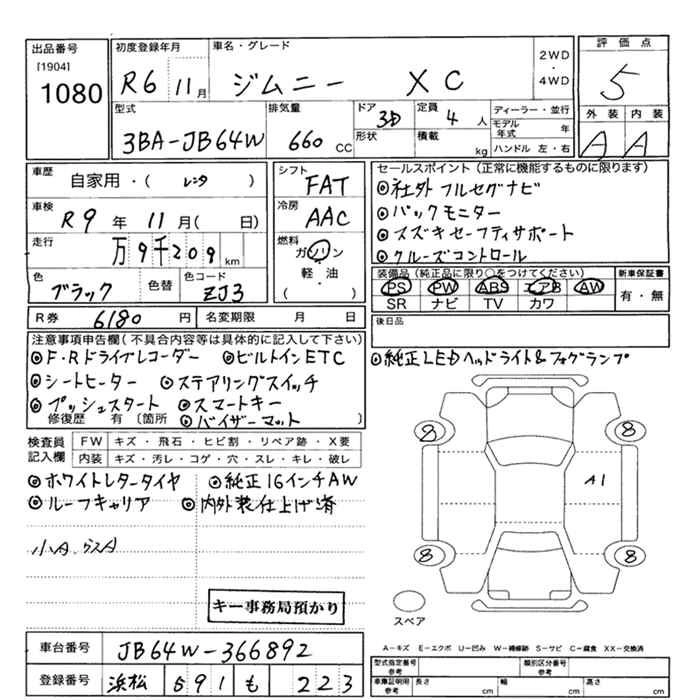 出品番号
[1904]
1080
初度登録年月
R6 11月
車名・グレード
ジムニー XC
2WD
・
4WD
評価点
5
外装 内装
A A
型式
3BA-JB64W
排気量
660 CC
ドア
3D
形状
定員
4 人
積載
kg
ディーラー・並行
モデル年式 年
ハンドル 左・右
車歴
自家用・( レンタ )
車検
R9 年 11月( 日)
走行
万9千209 km
色
ブラック
色替
色コード
ZJ3
シフト
FAT
冷房
AAC
燃料
ガソリン
軽・油
( )
セールスポイント(正常に機能するものに限ります)
◎社外フルセグナビ
◎バックモニター
◎スズキセーフティサポート
◎クルーズコントロール
装備品(純正品に限り○をつけてください)
PS PW ABS エアB AW
SR ナビ TV カワ
新車保証書
有・無
R券 6180 円
名変期限 月 日
後日品
注意事項申告欄(不具合内容等は具体的に記入して下さい)
◎F・Rドライブレコーダー ◎ビルトインETC
◎シートヒーター ◎ステアリングスイッチ
◎プッシュスタート ◎スマートキー
修復歴 有 〔箇所 ◎バイザーマット 〕
◎純正LEDヘッドライト&フォグランプ
検査員記入欄
FW キズ・飛石・ヒビ割・リペア跡・X要
内装 キズ・汚レ・コゲ・穴・スレ・キレ・破レ
◎ホワイトレタータイヤ ◎純正16インチAW
◎ルーフキャリア ◎内外装仕上げ済
小A
キー事務局預かり
8 8
A1
8 8
スペア
A-キズ E-エクボ U-凹み W-補修跡 S-サビ C-腐食 XX-交換済
車台番号 JB64W-366892
登録番号 浜松 591 も 223
型式指定番号
参考
類別区分番号
参考
車庫証明用
参考
長さ cm
幅 cm
高さ cm